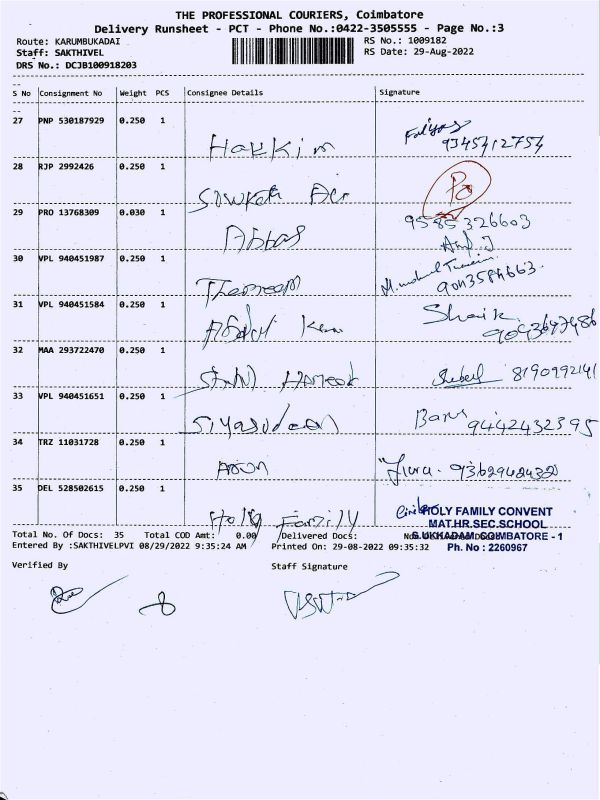 THE PROFESSIONAL COURIERS, Coimbatore
Delivery Runsheet - PCT - Phone No.:0422-3505555 - Page No.:3
Route: KARUMBUKADAI
RS No.: 1009182
Staff: SAKTHIVEL
RS Date: 29-Aug-2022
DRS No.: DCJB100918203
S No Consignment No Weight PCS Consignee Details Signature
27 PNP 530187929 0.250 1
Hakkim
9345412754
28 RJP 2992426 0.250 1
29 PRO 13768309 0.030 1
Abbas
9585326603
30 VPL 940451987 0.250 1
31 VPL 940451584 0.250 1
Shaik
32 MAA 293722470 0.250 1
8190992141
33 VPL 940451651 0.250 1
Siyasudeen
9442432395
34 TRZ 11031728 0.250 1
9362942432
35 DEL 528502615 0.250 1
Holy Family
HOLY FAMILY CONVENT
MAT.HR.SEC.SCHOOL
UKKADAM, COIMBATORE - 1
Ph. No : 2260967
Total No. Of Docs: 35 Total COD Amt: 0.00 Delivered Docs:
Entered By :SAKTHIVELPVI 08/29/2022 9:35:24 AM Printed On: 29-08-2022 09:35:32
Verified By Staff Signature